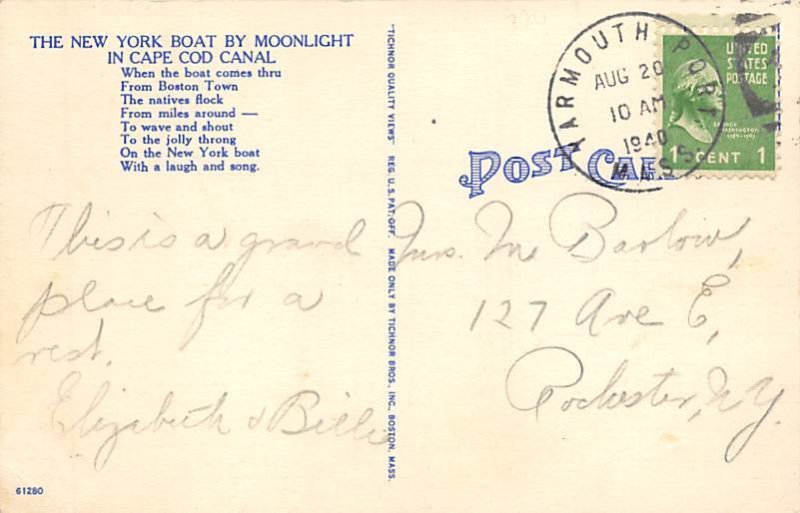 THE NEW YORK BOAT BY MOONLIGHT
IN CAPE COD CANAL
When the boat comes thru
From Boston Town
The natives flock
From miles around —
To wave and shout
To the jolly throng
On the New York boat
With a laugh and song.
This is a grand
place for a
rest.
Elizabeth & Billie
61280
"TICHNOR QUALITY VIEWS" REG. U.S. PAT. OFF. MADE ONLY BY TICHNOR BROS., INC., BOSTON, MASS.
YARMOUTH PORT
AUG 20
10 AM
1940
MASS.
UNITED
STATES
POSTAGE
GEORGE
WASHINGTON
1789-1797
1 CENT 1
POST CARD
Mrs. M Barlow,
127 Ave E,
Rochester, NY.